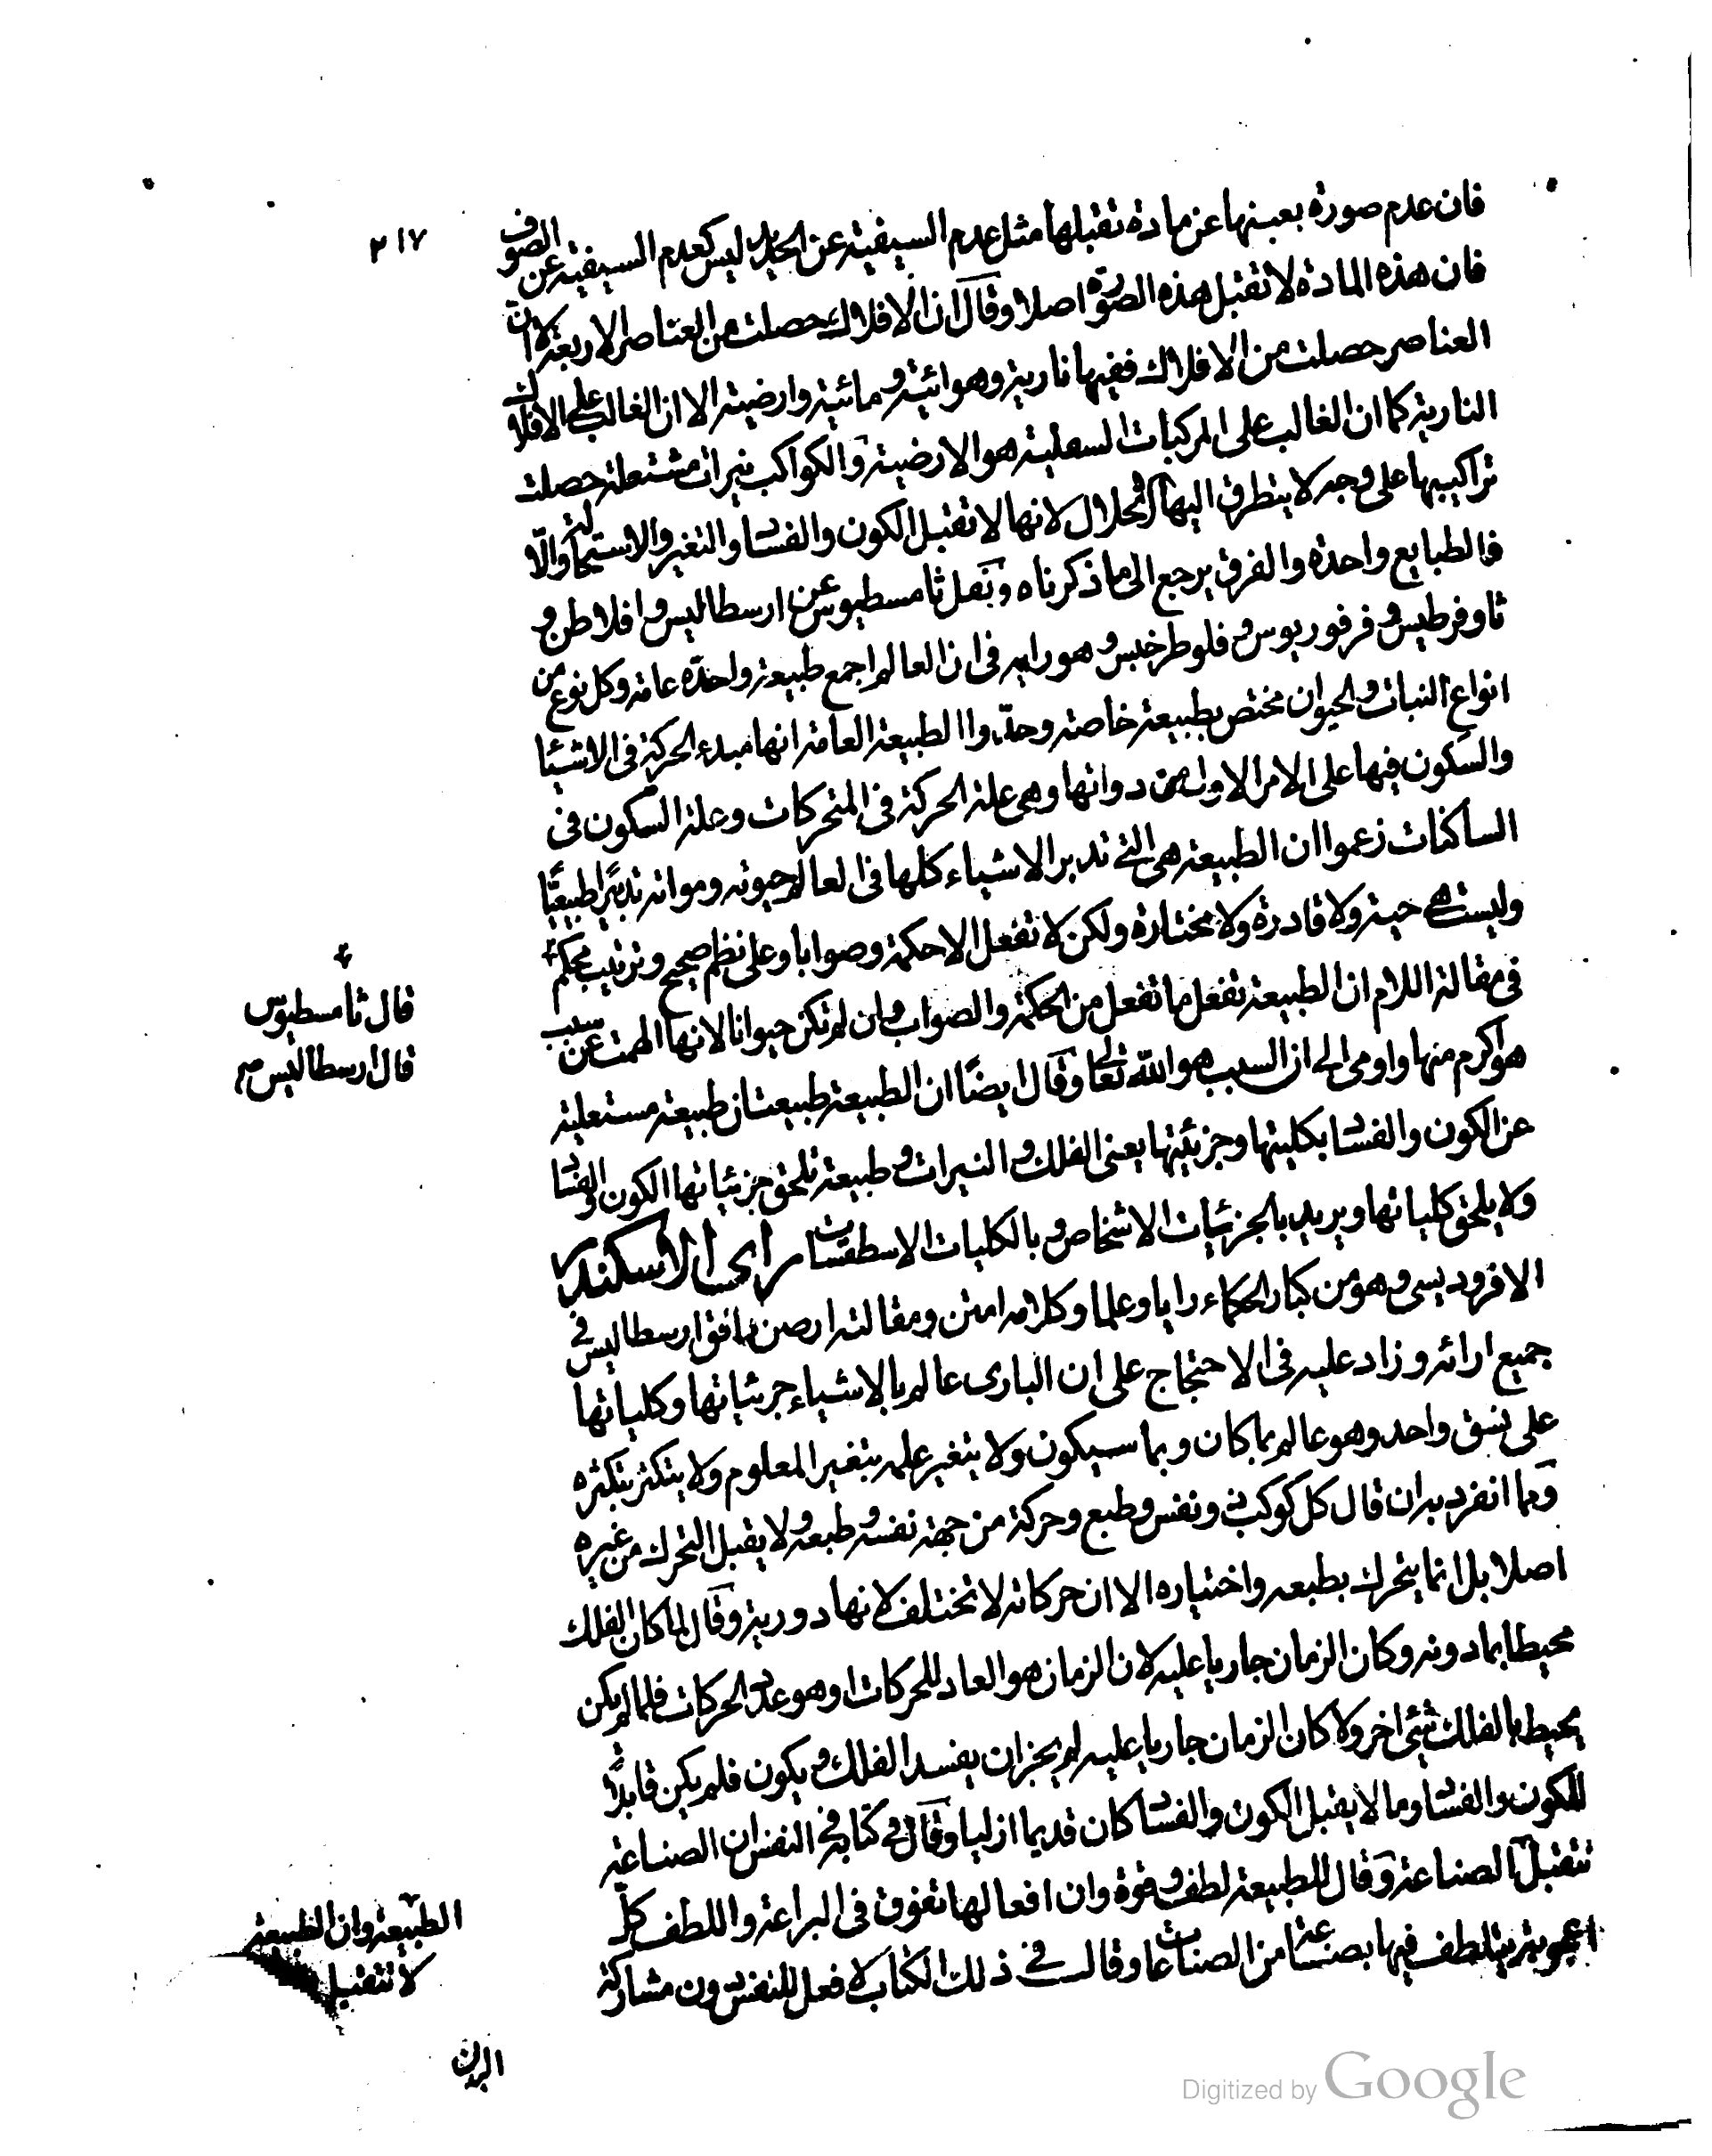 ٢١٧
فان عدم صورة بعينها عن مادة تقبلها مثل عدم السيفية عن الحديد ليس كعدم السيفية عن الصوف
فان هذه المادة لا تقبل هذه الصورة اصلا وقال ان الافلاك حصلت من العناصر الاربعة لا ان
العناصر حصلت من الافلاك ففيها نارية وهوائية ومائية وارضية الا ان الغالب على الافلاك
النارية كما ان الغالب على المركبات السفلية هو الارضية والكواكب نيرات مشتعلة حصلت
تراكيبها على وجه لا يتطرق اليها الانحلال لانها لا تقبل الكون والفساد والتغير والاستحالة والّا
فالطبايع واحدة والفرق يرجع الى ما ذكرناه ونقل ثامسطيوس عن ارسطاليس وافلاطن و
ثاوفرطيس وفرفوريوس وفلوطرخيس وهو رايه في ان العالم اجمع طبيعة واحدة عامة وكل نوع من
انواع النبات والحيوان مختص بطبيعة خاصة وحدّوا الطبيعة العامة انها مبدء الحركة في الاشيا
والسكون فيها على الامر الاول من دواتها وهى علة الحركة في المتحركات وعلة السكون في
الساكنات زعموا ان الطبيعة هى التى تدبر الاشياء كلها في العالم حيوته ومواته تدبيرًا طبيعيًّا
وليست هى حية ولا قادرة ولا مختارة ولكن لا تفعل الا حكمة وصوابا وعلى نظم صحيح وترتيب محكم
قال ثامسطيوس
قال ارسطاليس
في مقالة اللام ان الطبيعة تفعل ما تفعل من الحكمة والصواب وان لم تكن حيوانا الا انها الهمت عن سبب
هو اكرم منها واومى الى ان السبب هو الله تعالى وقال ايضًا ان الطبيعة طبيعتان طبيعة مستعلية
عن الكون والفساد بكليتها وجزئيتها يعنى الفلك والنيرات وطبيعة تلحق جزئياتها الكون والفساد
ولا يلحق كلياتها ويريد بالجزئيات الاشخاص وبالكليات الاسطقسات راى الاسكندر
الافروديسى وهو من كبار الحكماء رايا وعلما وكلامه امتن ومقالته ارصن وافق ارسطاليس في
جميع ارائه وزاد عليه في الاحتجاج على ان البارى عالم بالاشياء جزئياتها وكلياتها
على نسق واحد وهو عالم بما كان وبما سيكون ولا يتغير علمه بتغير المعلوم ولا يتكثر بتكثره
ومما انفرد به ان قال كل كوكب ذو نفس وطبع وحركة من جهة نفسه وطبعه ولا يقبل التحرك من غيره
اصلا بل انما يتحرك بطبعه واختياره الا ان حركاته لا تختلف لانها دورية وقال لما كان الفلك
محيطا بما دونه وكان الزمان جاريا عليه لان الزمان هو العاد للحركات او هو عدد الحركات فلما لم يكن
يحيط بالفلك شئ اخر ولا كان الزمان جاريا عليه لم يجز ان يفسد الفلك ويكون فلم يكن قابلًا
للكون والفساد وما لا يقبل الكون والفساد كان قديما ازليا وقال في كتابه في النفس ان الصناعة
تتقبل الطبيعة وان الطبيعة
لا تتقبل
الصناعة وقال للطبيعة لطف وقوة وان افعالها تفوق في البراعة واللطف كلّ
اعجوبة يتلطف فيها بصناعة من الصناعات وقال في ذلك الكتاب لا فعل للنفس دون مشاركة
البدن
Digitized by Google